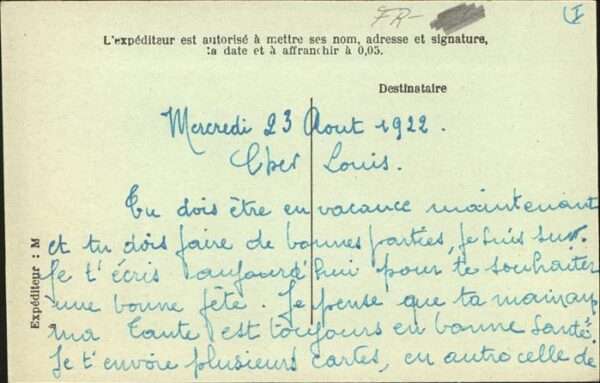 FR-
I
L'expéditeur est autorisé à mettre ses nom, adresse et signature,
la date et à affranchir à 0,05.
Destinataire
Expéditeur : M
Mercredi 23 Aout 1922.
Cher Louis.
Tu dois être en vacance maintenant
et tu dois faire de bonnes parties, je suis sur.
Je t'écris aujourd'hui pour te souhaiter
une bonne fête. Je pense que ta maman
ma Tante est toujours en bonne santé.
Je t'envoie plusieurs cartes, en autro celle de